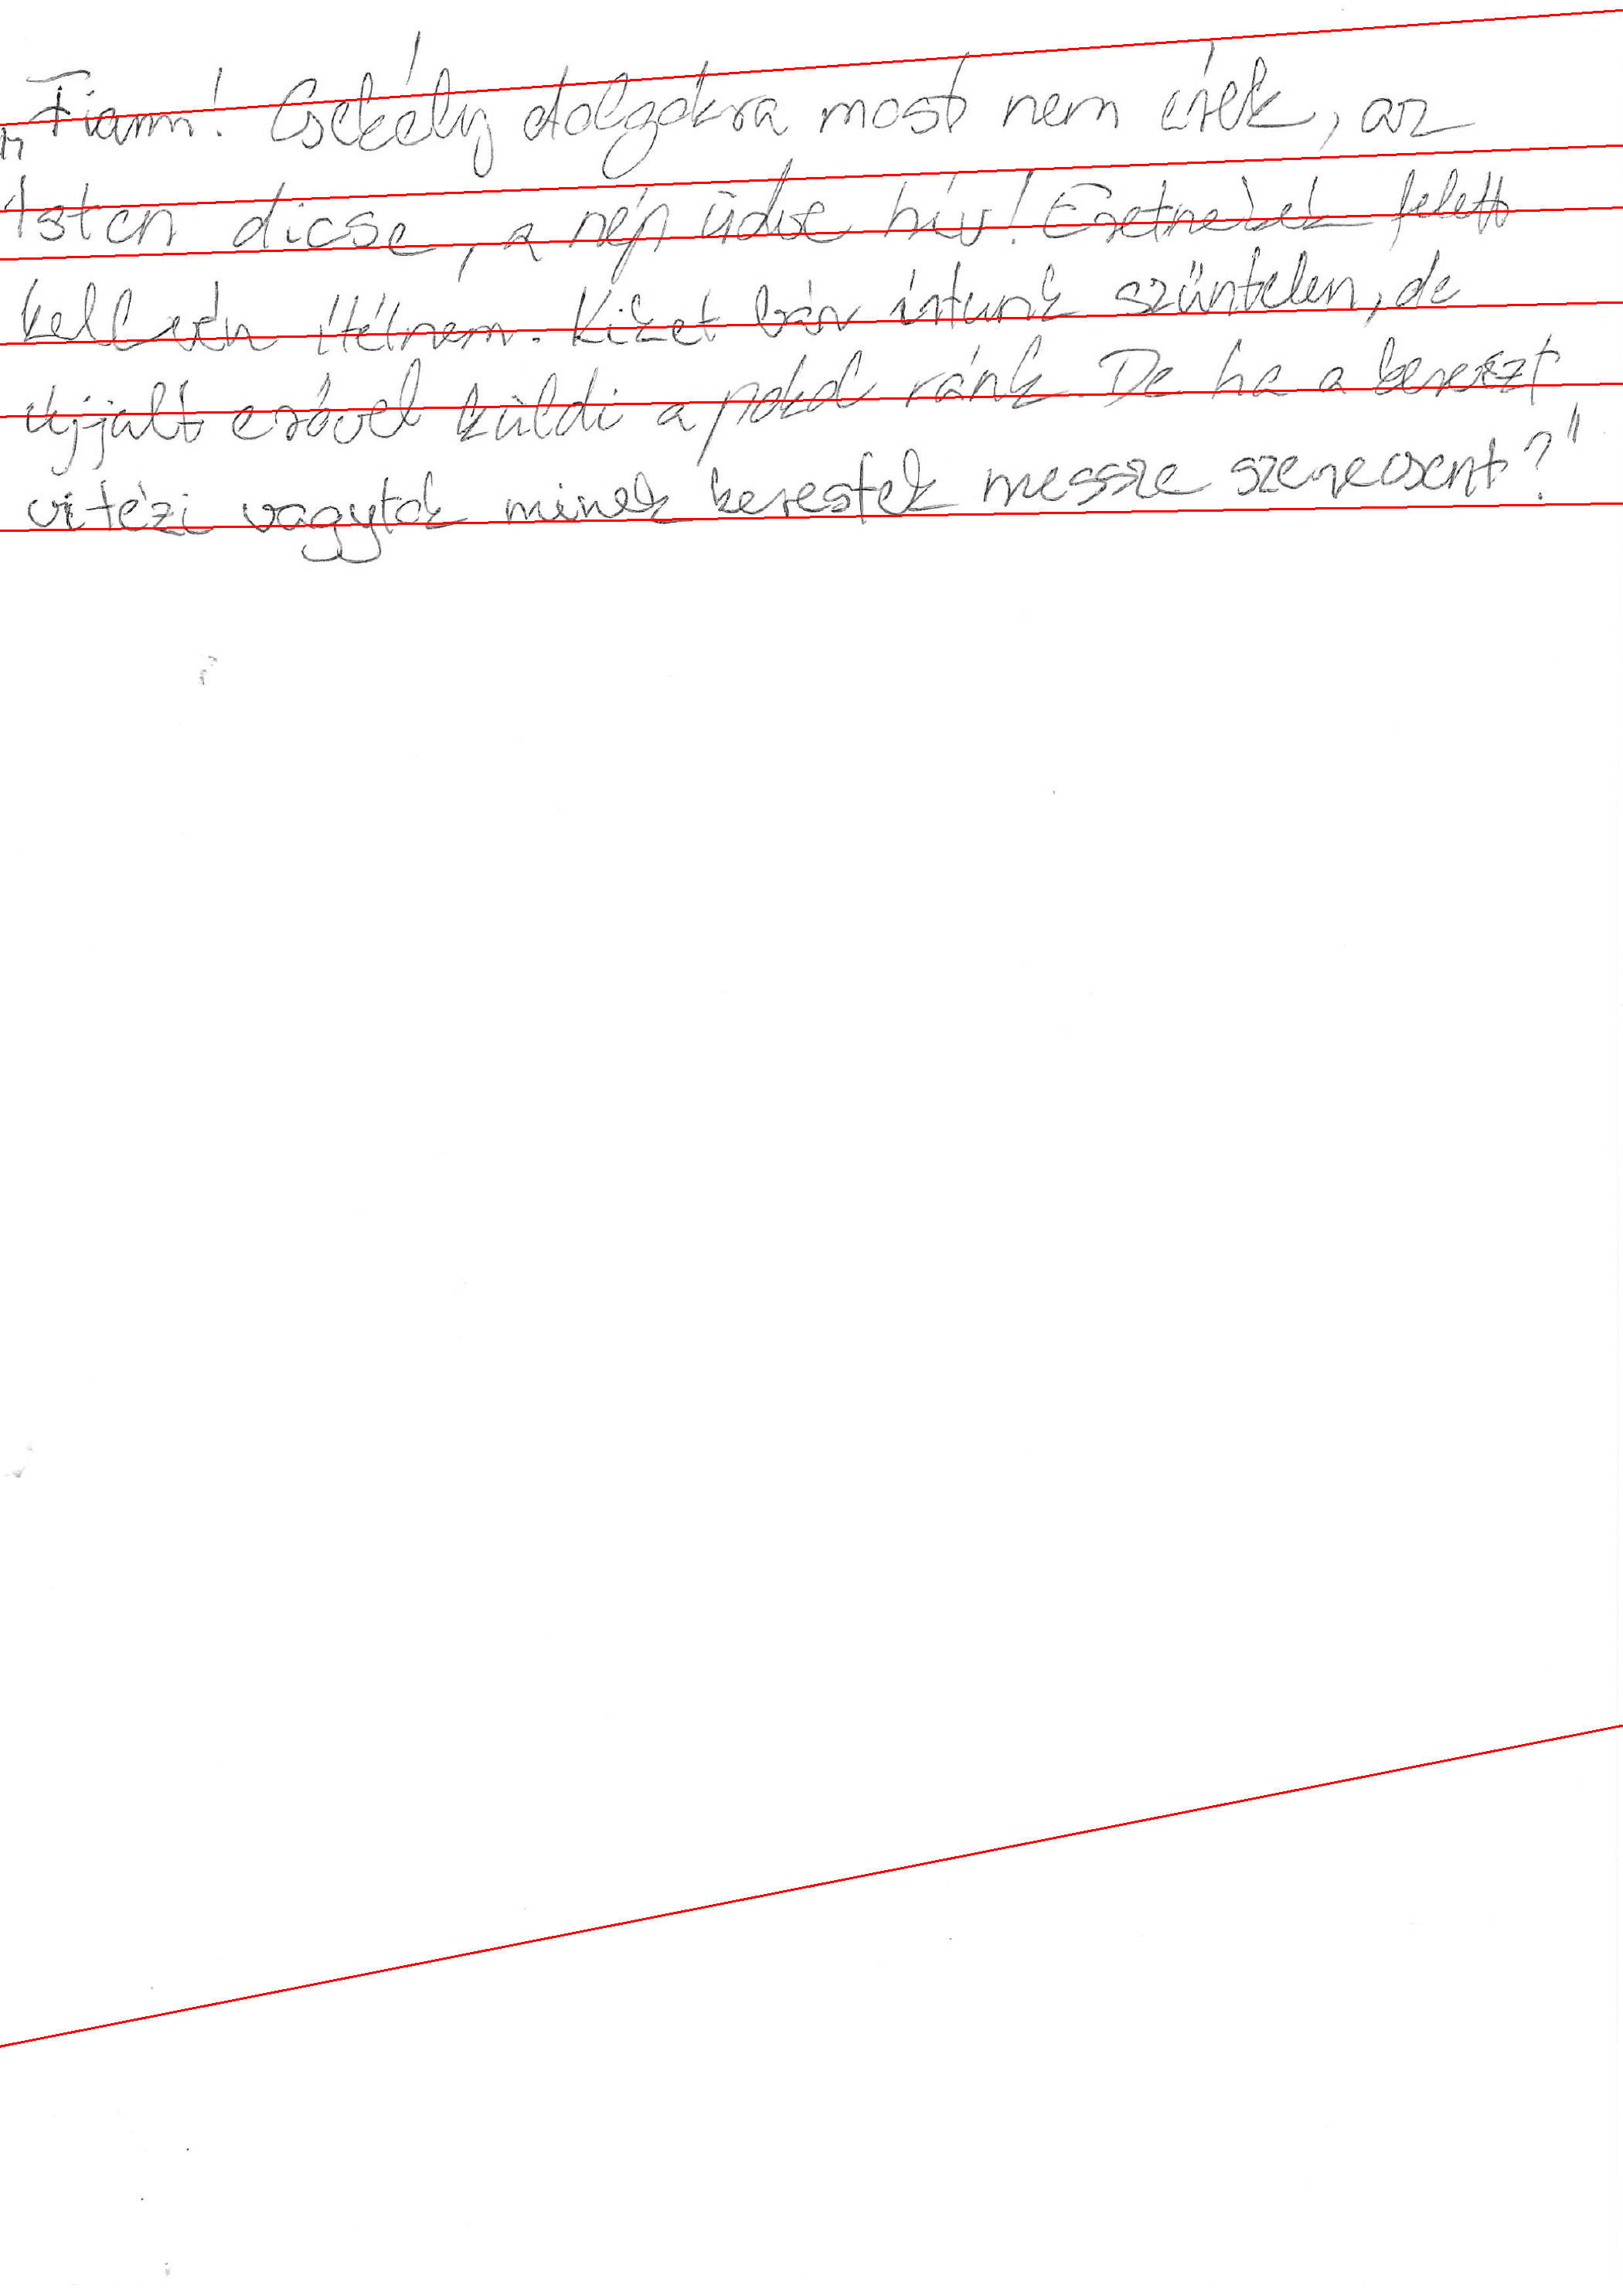 „Fiam! Csekély dolgokra most nem érek, az
Isten dicse, a nép üdve hív! Eretnekek felett
kell ítélnem. Kiket bár írtunk szüntelen, de
újjult erővel küldi a pokol ránk. De ha a kereszt
vitézi vagytok minek kerestek messze szerecsent?"